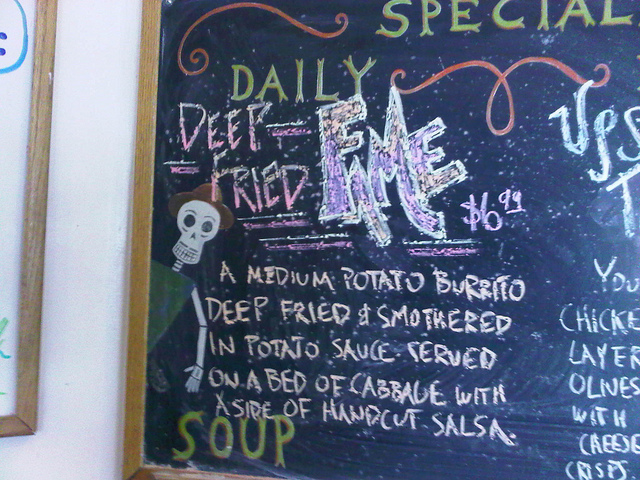 SPECIAL
DAILY
DEEP-
FRIED
FAME
$6.99
A MEDIUM POTATO BURRITO
DEEP FRIED & SMOTHERED
IN POTATO SAUCE SERVED
ON A BED OF CABBAGE WITH
A SIDE OF HANDCUT SALSA.
SOUP
UPS
T
YOU
CHICKE
LAYER
OLIVES
WITH
CHEESE
CRISPS.